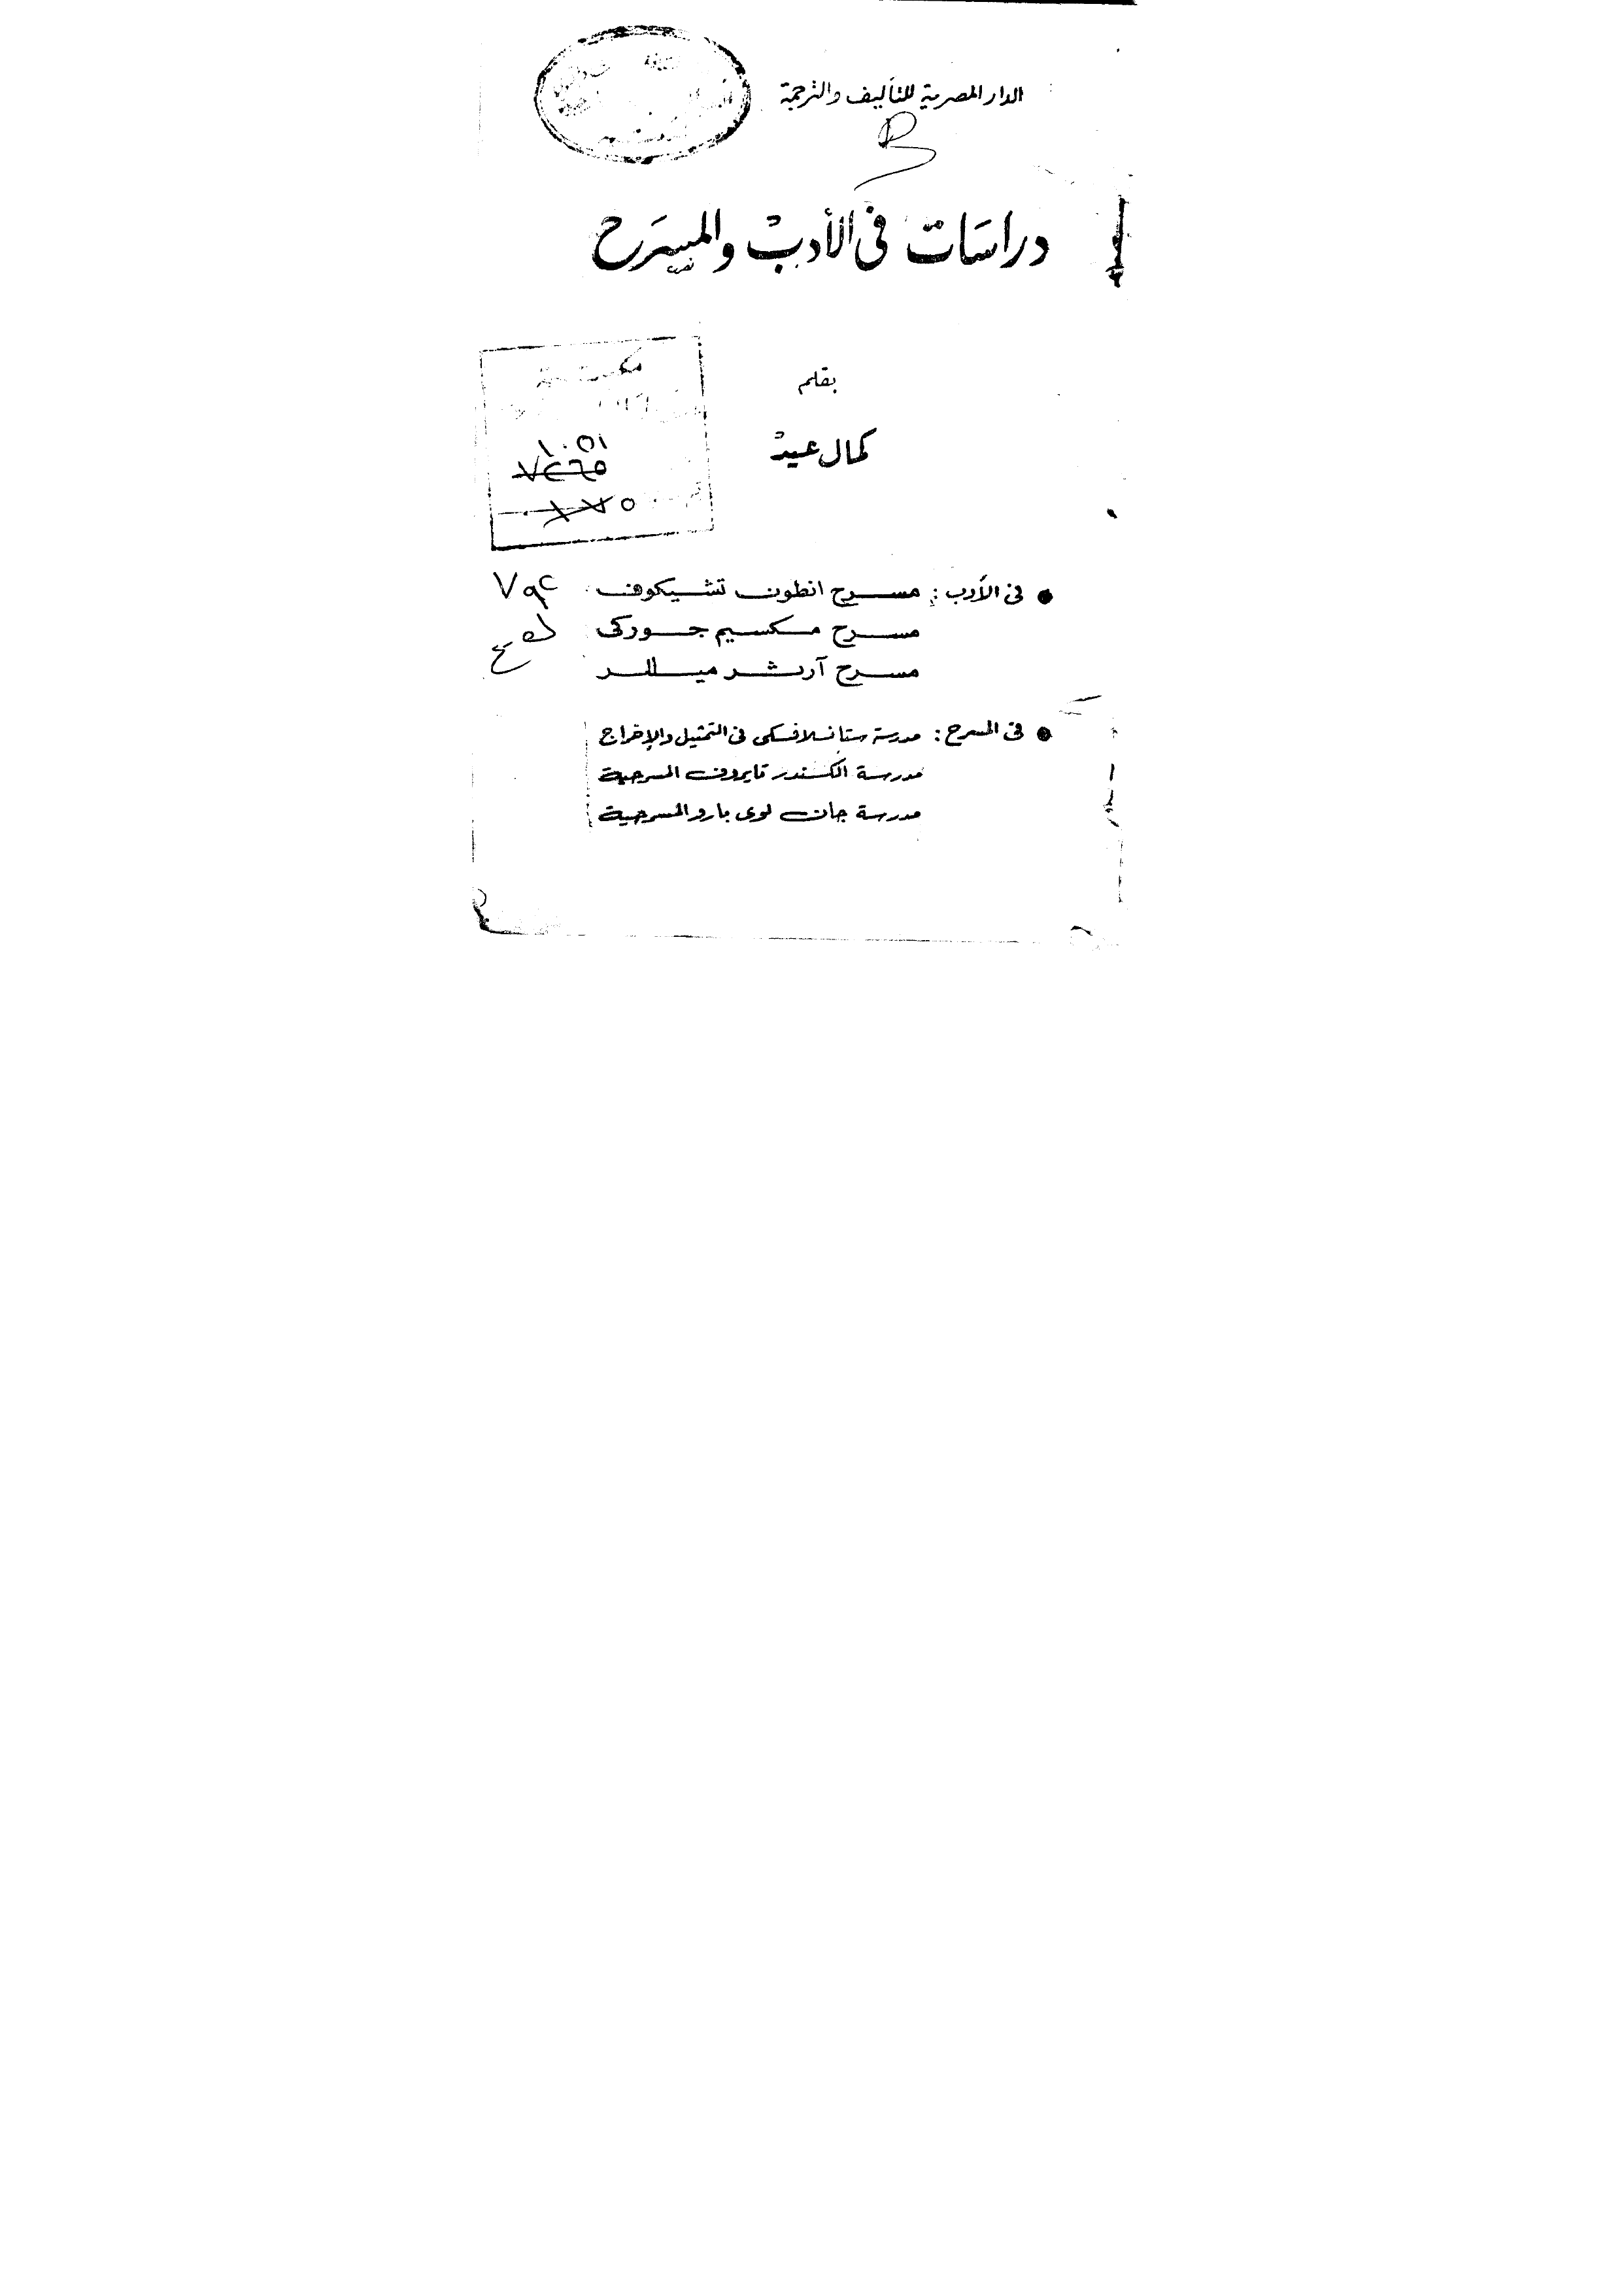 الدار المصرية للتأليف والترجمة
دراسات في الأدب والمسرح
بقلم
كمال عيد
١٠٥١
٧٤٦٥
• فى الأدب : مسرح انطون تشيكوف
٧٩٢
مسرح مكسيم جوركى
مسرح آرثر ميللر
• فى المسرح : مدرسة ستانسلافسكى فى التمثيل والإخراج
مدرسة الكسندر تايروف المسرحية
مدرسة جان لوى بارو المسرحية